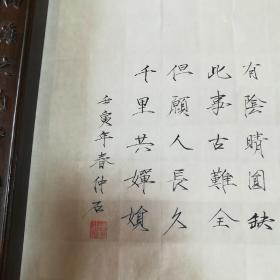 有陰晴圓缺
此事古難全
但願人長久
千里共嬋娟
壬寅年春仲石